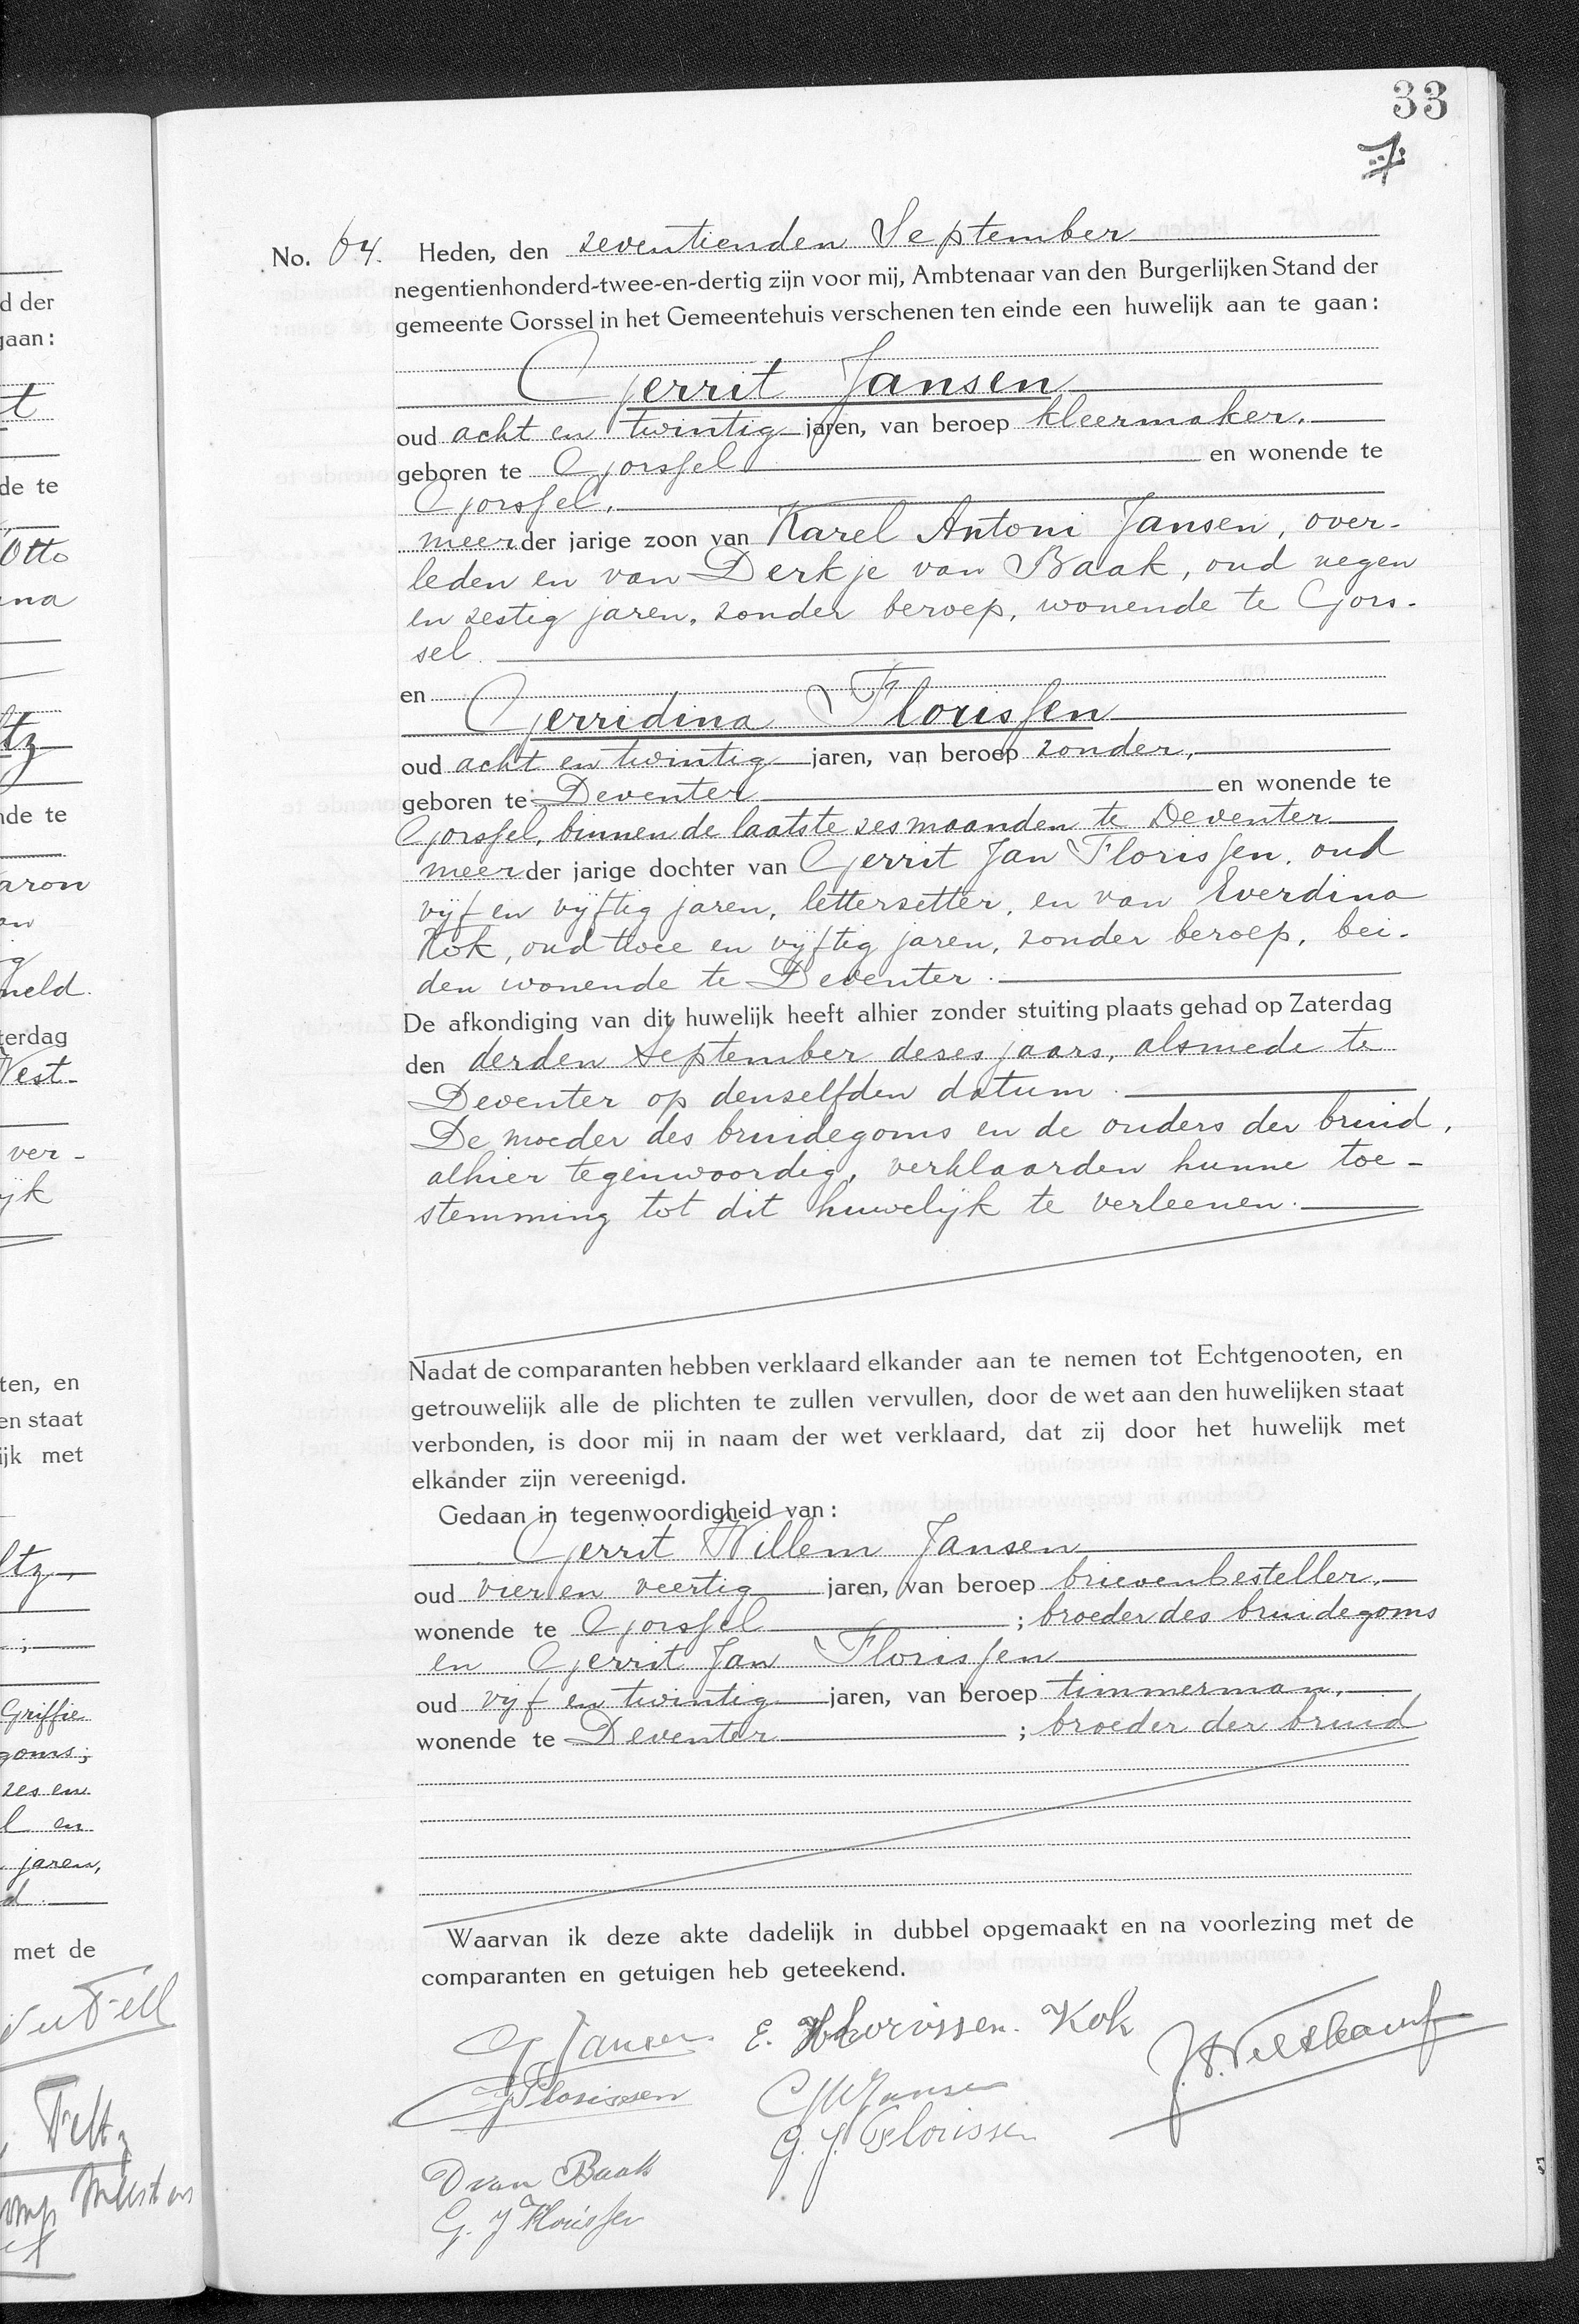 33
No. 64. Heden, den zeventienden September
negentienhonderd-twee-en-dertig zijn voor mij, Ambtenaar van den Burgerlijken Stand der
gemeente Gorssel in het Gemeentehuis verschenen ten einde een huwelijk aan te gaan:
Gerrit Jansen
oud acht en twintig jaren, van beroep kleermaker,
geboren te Gorssel en wonende te
Gorssel,
meerder jarige zoon van Karel Antoni Jansen, over-
leden en van Derkje van Baak, oud negen
en zestig jaren, zonder beroep, wonende te Gors-
sel.
en
Gerridina Florissen
oud acht en twintig jaren, van beroep zonder,
geboren te Deventer en wonende te
Gorssel, binnen de laatste zes maanden te Deventer
meerder jarige dochter van Gerrit Jan Florissen, oud
vijf en vijftig jaren, letterzetter, en van Everdina
Kok, oud twee en vijftig jaren, zonder beroep, bei-
den wonende te Deventer.
De afkondiging van dit huwelijk heeft alhier zonder stuiting plaats gehad op Zaterdag
den derden September dezes jaars, alsmede te
Deventer op denzelfden datum.
De moeder des bruidegoms en de ouders der bruid,
alhier tegenwoordig, verklaarden hunne toe-
stemming tot dit huwelijk te verleenen.
Nadat de comparanten hebben verklaard elkander aan te nemen tot Echtgenooten, en
getrouwelijk alle de plichten te zullen vervullen, door de wet aan den huwelijken staat
verbonden, is door mij in naam der wet verklaard, dat zij door het huwelijk met
elkander zijn vereenigd.
Gedaan in tegenwoordigheid van:
Gerrit Willem Jansen
oud vier en veertig jaren, van beroep brievenbesteller,
wonende te Gorssel ; broeder des bruidegoms
en Gerrit Jan Florissen
oud vijf en twintig jaren, van beroep timmerman,
wonende te Deventer ; broeder der bruid
Waarvan ik deze akte dadelijk in dubbel opgemaakt en na voorlezing met de
comparanten en getuigen heb geteekend.
G Jansen. E. Florissen. Kok
G Florissen GW Jansen
G. J. Florissen
D van Baak
G. J Florissen